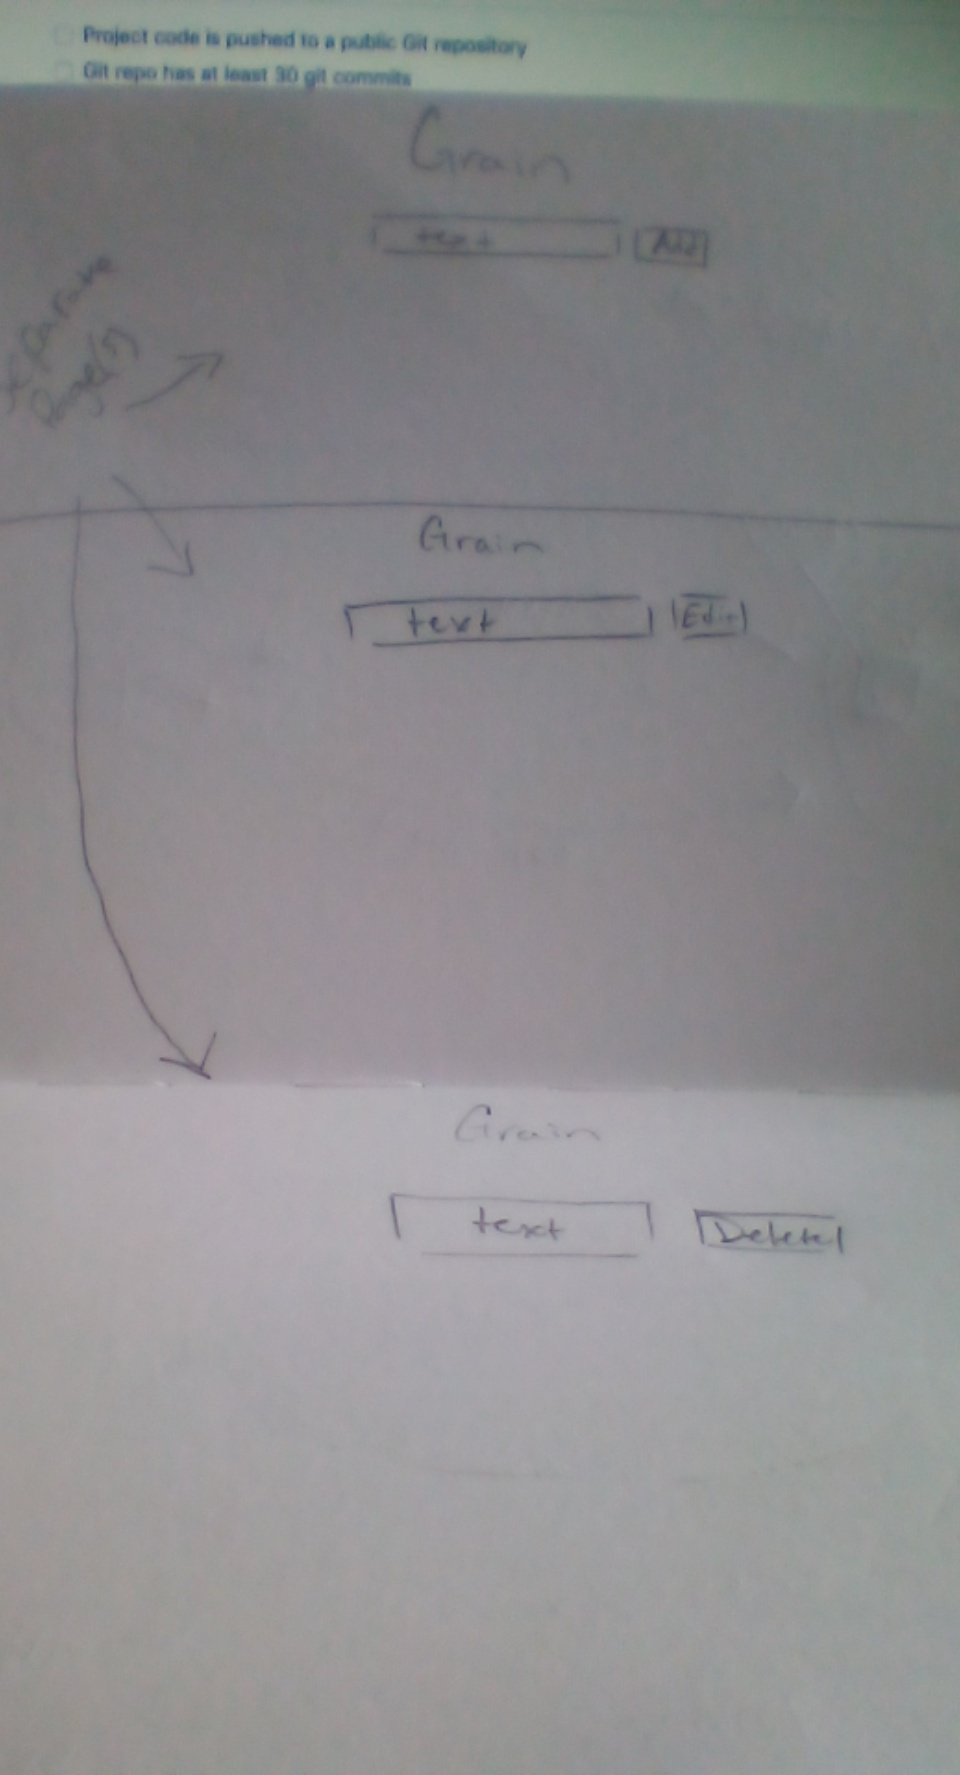 Project code is pushed to a public Git repository
Git repo has at least 30 git commits
Grain
text Add
Separate
Page(s)
Grain
text Edit
Grain
text Delete